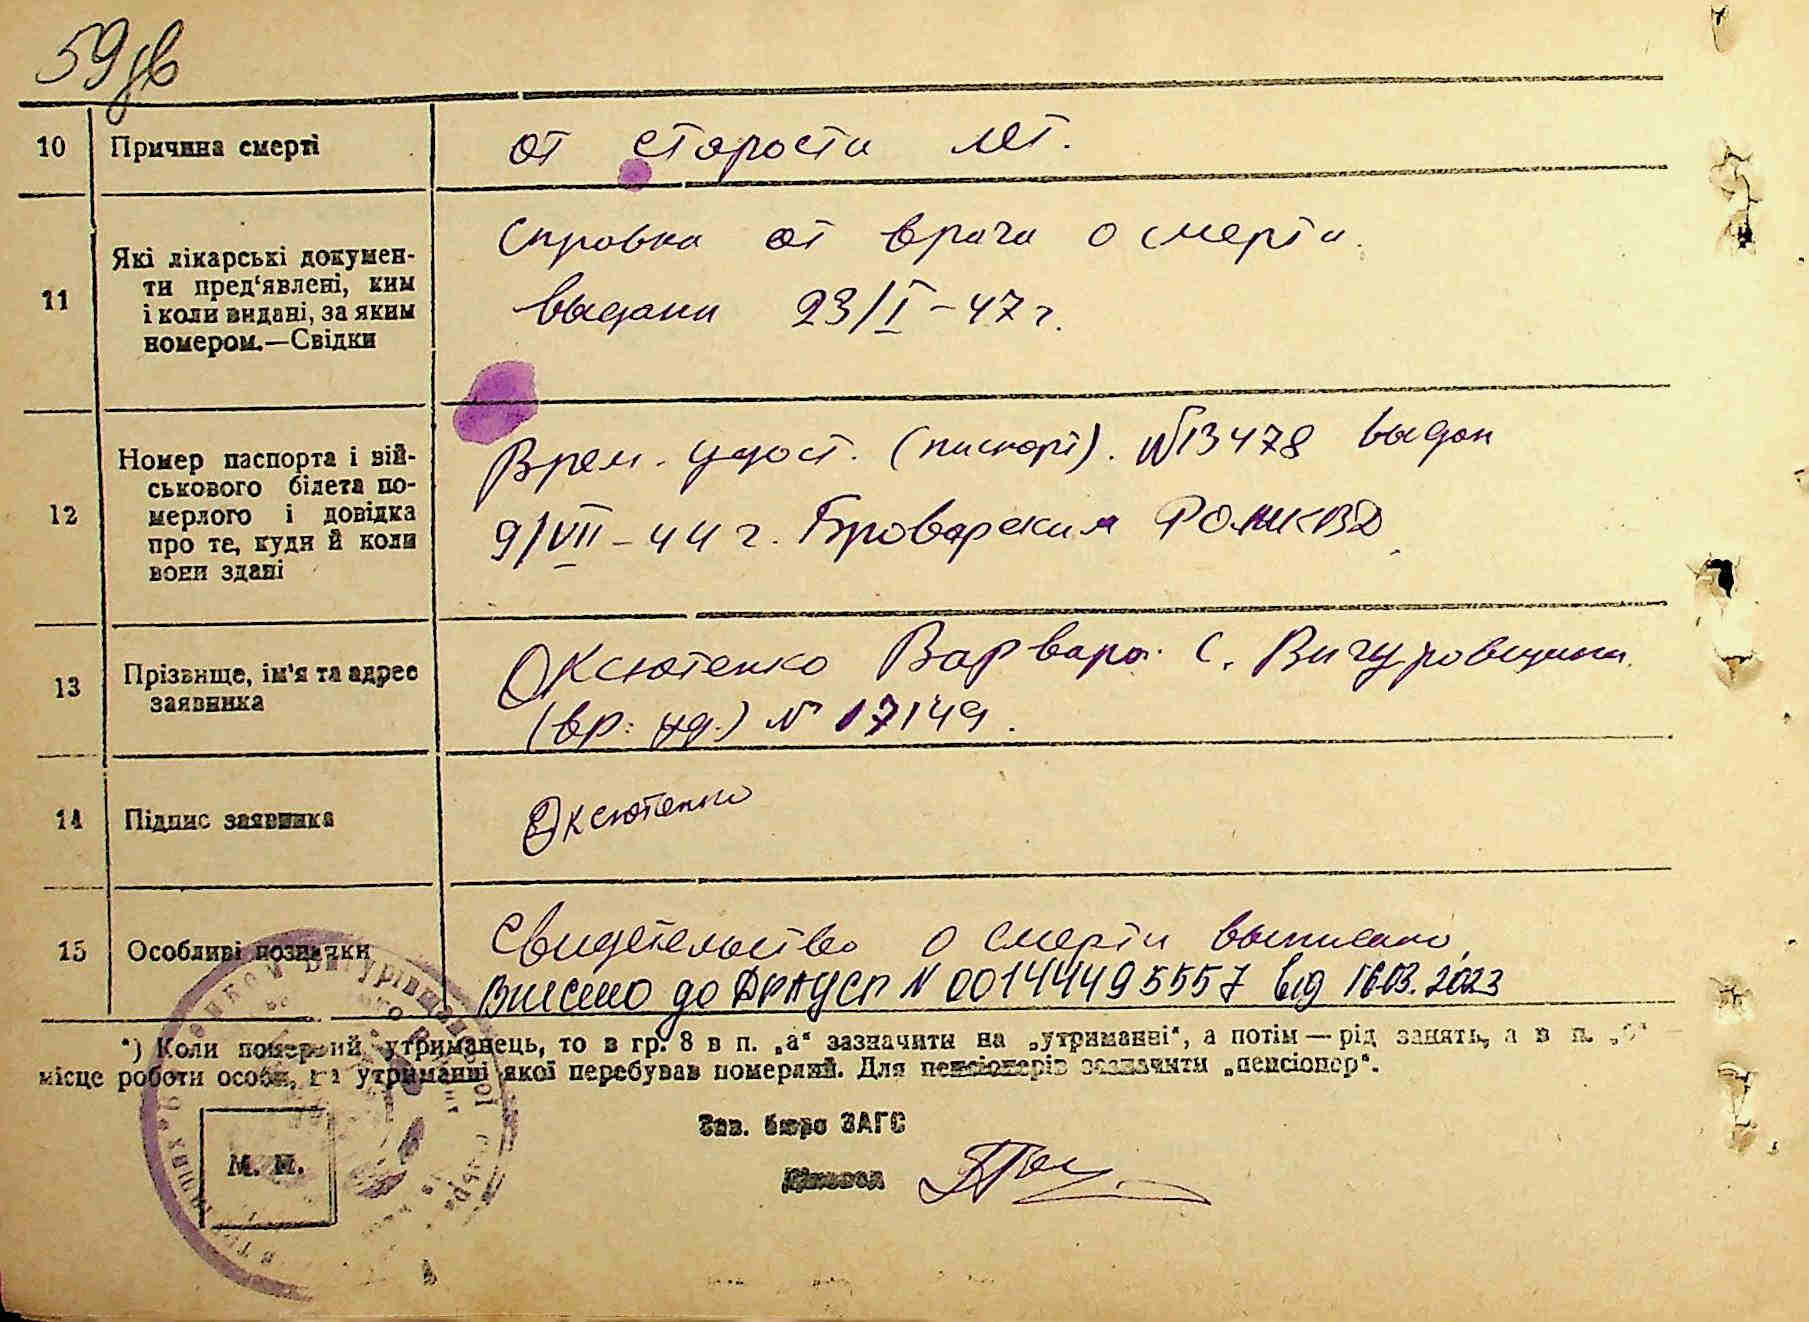 59зв
10 Причина смерті от старости лет.
11 Які лікарські докумен-
ти пред'явлені, ким
і коли видані, за яким
номером.—Свідки
Справка от врача о смерти.
выдана 23/I-47 г.
12 Номер паспорта і вій-
ськового білета по-
мерлого і довідка
про те, куди й коли
вони здані
Врем. удост. (паспорт). №13478 выдан
9/VII-44 г. Броварским РОМНКВД
13 Прізвище, ім'я та адрес
заявника
Оксютенко Варвара с. Вигуровщина
(вр: уд.) № 17149.
14 Підпис заявника Оксютенко
15 Особливі позначки Свидетельство о смерти выписано,
Внесено до ДРАЦСГ N 00144495557 від 16.03.2023
*) Коли померлий утриманець, то в гр. 8 в п. „а“ зазначити на „утриманні“, а потім — рід занять, а в п. „б“ —
місце роботи особи, на утриманні якої перебував померлий. Для пенсіонерів зазначити „пенсіонер“.
Зав. бюро ЗАГС
М. П.
Діловод